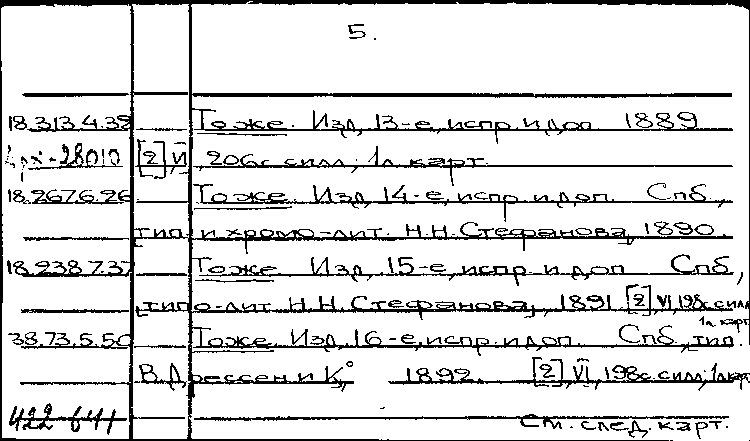 5.
18.313.4.39 То же. Изд. 13-е, испр. и доп. 1889
Арх-28010 [2], VI, 206с. с илл.; 1л. карт.
18.267.6.26 То же. Изд. 14-е, испр. и доп. Спб.,
тип. и хромо-лит. Н.Н. Стефанова, 1890.
18.238.7.37 То же. Изд. 15-е, испр. и доп. Спб.,
типо-лит. Н.Н. Стефанова, 1891 [2], VI, 198с. с илл.
1л. карт.
38.73.5.50 То же. Изд. 16-е, испр. и доп. Спб., тип.
В. Дрессен и К°, 1892. [2], VI, 198с. с илл., 1л. карт
422-641 См. след. карт.